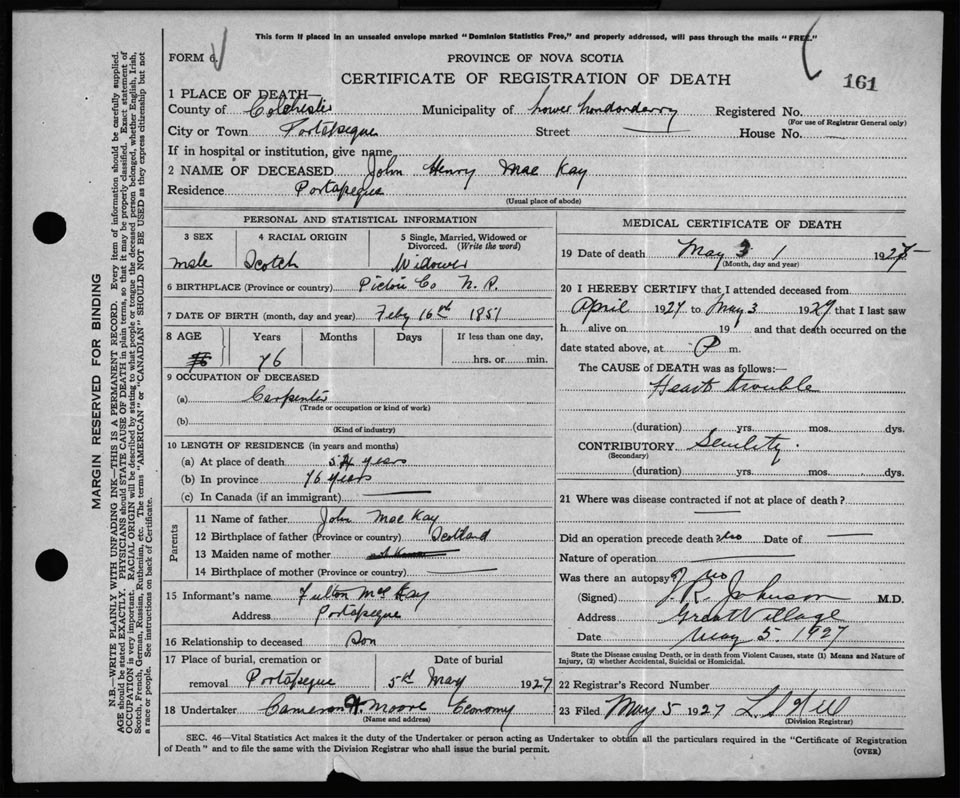 This form if placed in an unsealed envelope marked "Dominion Statistics Free," and properly addressed, will pass through the mails "FREE."
FORM 6.
PROVINCE OF NOVA SCOTIA
CERTIFICATE OF REGISTRATION OF DEATH
161
1 PLACE OF DEATH—
County of Colchester Municipality of Lower Londonderry Registered No.
(For use of Registrar General only)
City or Town Portapeque Street — House No. —
If in hospital or institution, give name
2 NAME OF DECEASED John Henry Mac Kay
Residence Portapeque
(Usual place of abode)
PERSONAL AND STATISTICAL INFORMATION
3 SEX 4 RACIAL ORIGIN 5 Single, Married, Widowed or Divorced. (Write the word)
male Scotch Widower
6 BIRTHPLACE (Province or country) Pictou Co N.S.
7 DATE OF BIRTH (month, day and year) Feby 16th 1851
8 AGE Years Months Days If less than one day,
76 hrs. or min.
9 OCCUPATION OF DECEASED
(a) Carpenter
(Trade or occupation or kind of work)
(b)
(Kind of industry)
10 LENGTH OF RESIDENCE (in years and months)
(a) At place of death 54 years
(b) In province 76 years
(c) In Canada (if an immigrant) —
Parents
11 Name of father John Mac Kay
12 Birthplace of father (Province or country) Scotland
13 Maiden name of mother
14 Birthplace of mother (Province or country) —
15 Informant's name Fulton Mac Kay
Address Portapeque
16 Relationship to deceased Son
17 Place of burial, cremation or removal Portapeque
Date of burial 5th May 1927
18 Undertaker Cameron H. Moore Economy
(Name and address)
MEDICAL CERTIFICATE OF DEATH
19 Date of death May 3 1927
(Month, day and year)
20 I HEREBY CERTIFY that I attended deceased from
April 1927 to May 3 1927 that I last saw
h alive on 19 and that death occurred on
date stated above, at P m.
The CAUSE of DEATH was as follows:
Heart trouble
(duration) yrs. mos. dys.
CONTRIBUTORY Senility.
(Secondary)
(duration) yrs. mos. dys.
21 Where was disease contracted if not at place of death?
—
Did an operation precede death? no Date of —
Nature of operation —
Was there an autopsy? no
(Signed) J. R. Johnson M.D.
Address Great Village
Date May 5. 1927
State the Disease causing Death, or in death from Violent Causes, state (1) Means and Nature of Injury, (2) whether Accidental, Suicidal or Homicidal.
22 Registrar's Record Number
23 Filed May 5 1927
(Division Registrar)
SEC. 46—Vital Statistics Act makes it the duty of the Undertaker or person acting as Undertaker to obtain all the particulars required in the "Certificate of Registration
of Death" and to file the same with the Division Registrar who shall issue the burial permit.
(OVER)
MARGIN RESERVED FOR BINDING
N.B.—WRITE PLAINLY WITH UNFADING INK—THIS IS A PERMANENT RECORD. Every item of information should be carefully supplied.
AGE should be stated EXACTLY. PHYSICIANS should STATE CAUSE OF DEATH in plain terms, so that it may be properly classified. Exact statement of
OCCUPATION is very important. RACIAL ORIGIN will be described by stating to what people or tongue the deceased person belonged, whether English, Irish,
Scotch, French, German, Russian, Ruthenian, etc. The terms "AMERICAN" or "CANADIAN" SHOULD NOT BE USED as they express citizenship but not
a race or people. See instructions on back of Certificate.